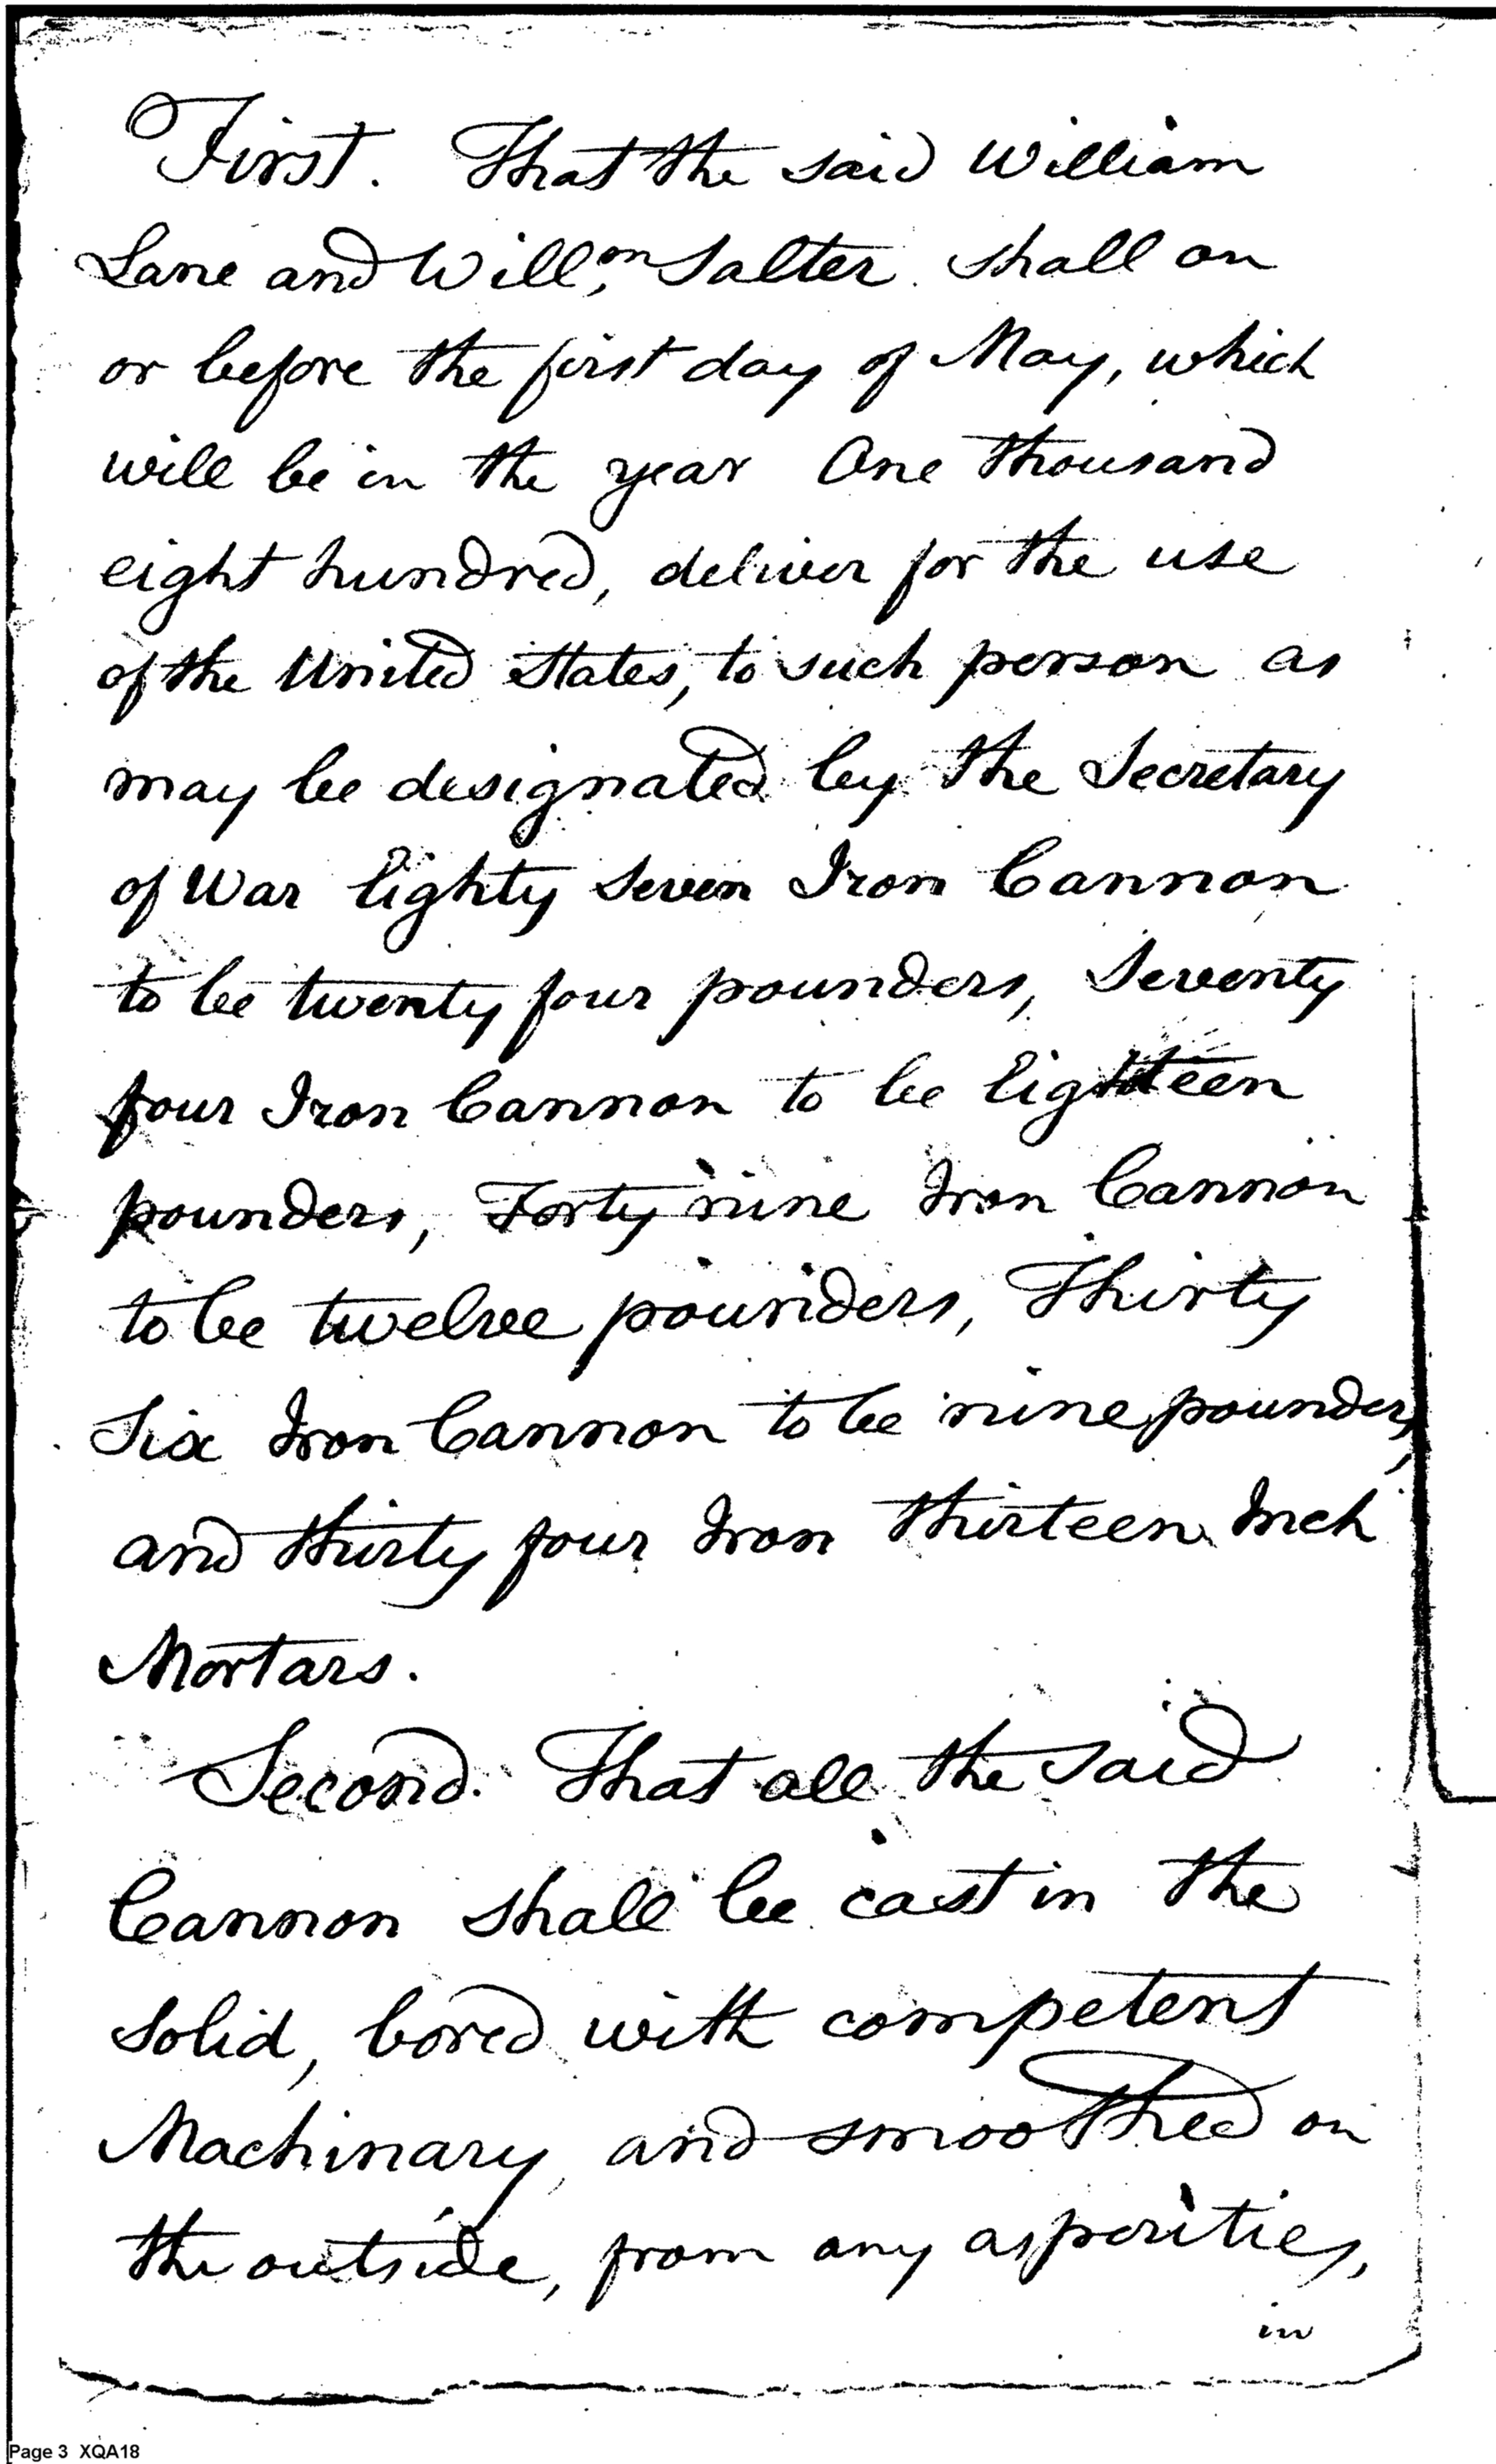 First. That the said William
Lane and Will,m Salter shall on
or before the first day of May, which
will be in the year One thousand
eight hundred, deliver for the use
of the United States, to such person as
may be designated by the Secretary
of War Eighty Seven Iron Cannon
to be twenty four pounders, Seventy
four Iron Cannon to be Eighteen
pounders, Forty nine Iron Cannon
to be twelve pounders, Thirty
Six Iron Cannon to be nine pounders,
and thirty four Iron thirteen Inch
Mortars.
Second. That all the said
Cannon shall be cast in the
solid, bored with competent
Machinary, and smoothed on
the outside, from any asperities,
in
Page 3 XQA18